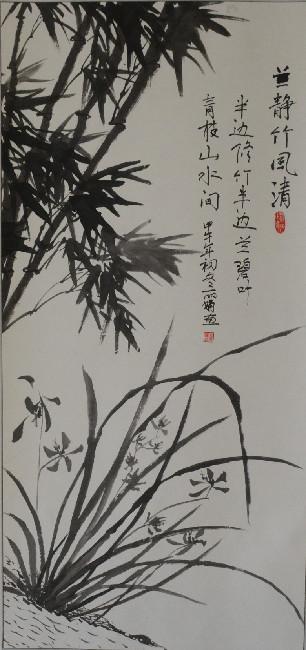 兰静竹风清
半边修竹半边兰碧叶
青枝山水间
甲午年初冬